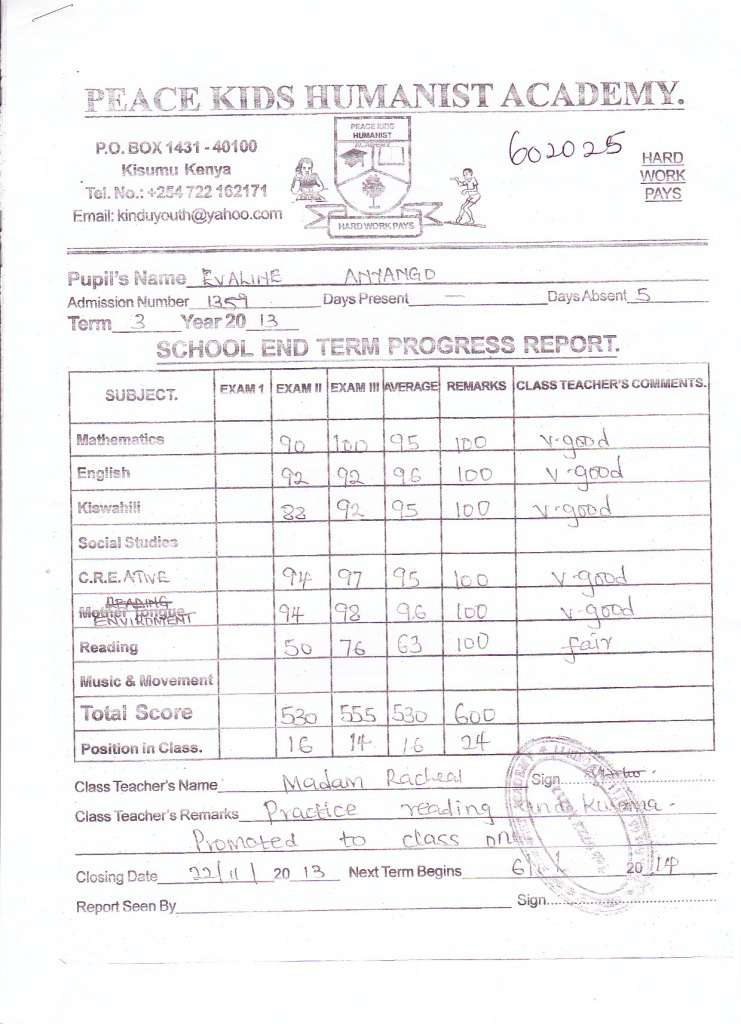 PEACE KIDS HUMANIST ACADEMY.
P.O. BOX 1431 - 40100
Kisumu Kenya
Tel. No.: +254 722 162171
Email: kinduyouth@yahoo.com
PEACE KIDS
HUMANIST
ACADEMY
HARD WORK PAYS
602025
HARD
WORK
PAYS
Pupil's Name EVALINE ANYANGO
Admission Number 1359 Days Present — Days Absent 5
Term 3 Year 20 13
SCHOOL END TERM PROGRESS REPORT.
SUBJECT. EXAM 1 EXAM II EXAM III AVERAGE REMARKS CLASS TEACHER'S COMMENTS.
Mathematics 90 100 95 100 v-good
English 92 92 96 100 v-good
Kiswahili 88 92 95 100 v-good
Social Studies
C.R.E.ATIVE 94 97 95 100 v-good
READING
Mother Tongue 94 98 96 100 v-good
ENVIRDMENT
Reading 50 76 63 100 fair
Music & Movement
Total Score 530 555 530 600
Position in Class. 16 14 16 24
Class Teacher's Name Madam Racheal Sign
Class Teacher's Remarks Practice reading
Promoted to class
Closing Date 22/11/ 20 13 Next Term Begins 6/ 20 14
Report Seen By Sign